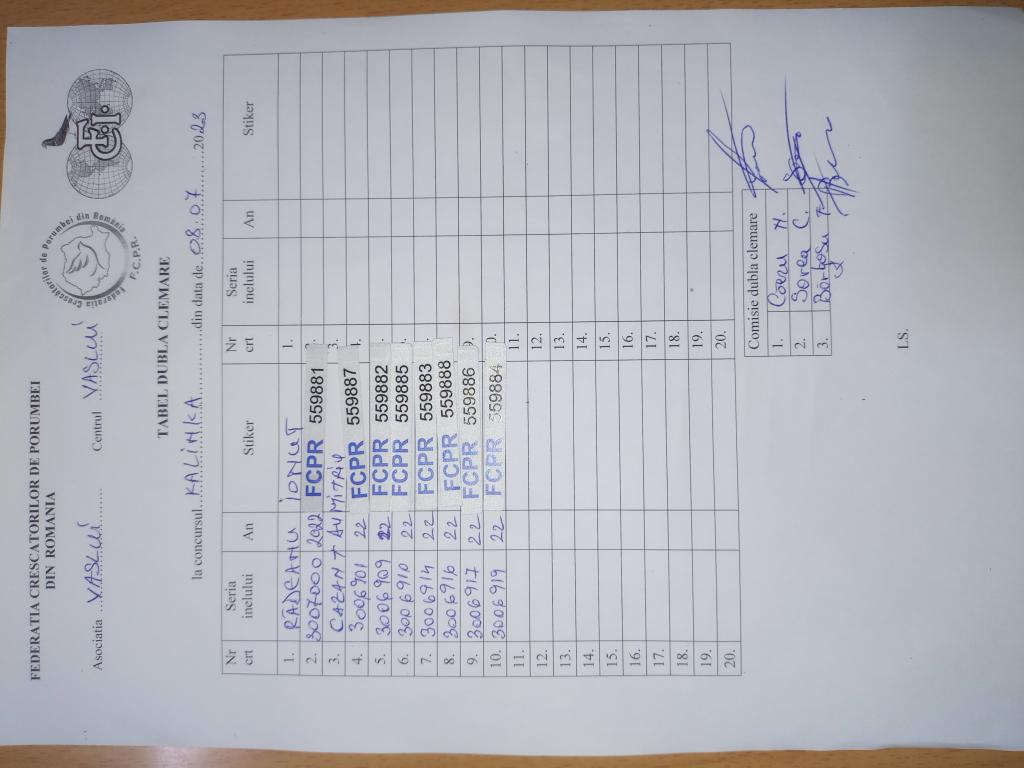 FEDERATIA CRESCATORILOR DE PORUMBEI
DIN ROMANIA
Federatia Crescatorilor de Porumbei din România
F.C.P.R.
F.C.I.
Asociatia ...VASLUI......... Centrul ...VASLUI
TABEL DUBLA CLEMARE
la concursul...KALINKA..............din data de...08.07..........2023
Nr crt Seria inelului An Stiker Nr crt Seria inelului An Stiker
1. RADEANU IONUT 1.
2. 3007000 2022 FCPR 559881
3. CAZAN + DUMITRIU 3.
4. 3006901 22 FCPR 559887 4.
5. 3006909 22 FCPR 559882
6. 3006910 22 FCPR 559885
7. 3006914 22 FCPR 559883
8. 3006916 22 FCPR 559888
9. 3006917 22 FCPR 559886 9.
10. 3006919 22 FCPR 559884 0.
11. 11.
12. 12.
13. 13.
14. 14.
15. 15.
16. 16.
17. 17.
18. 18.
19. 19.
20. 20.
Comisie dubla clemare
1.
2. Sorea C.
3.
L.S.